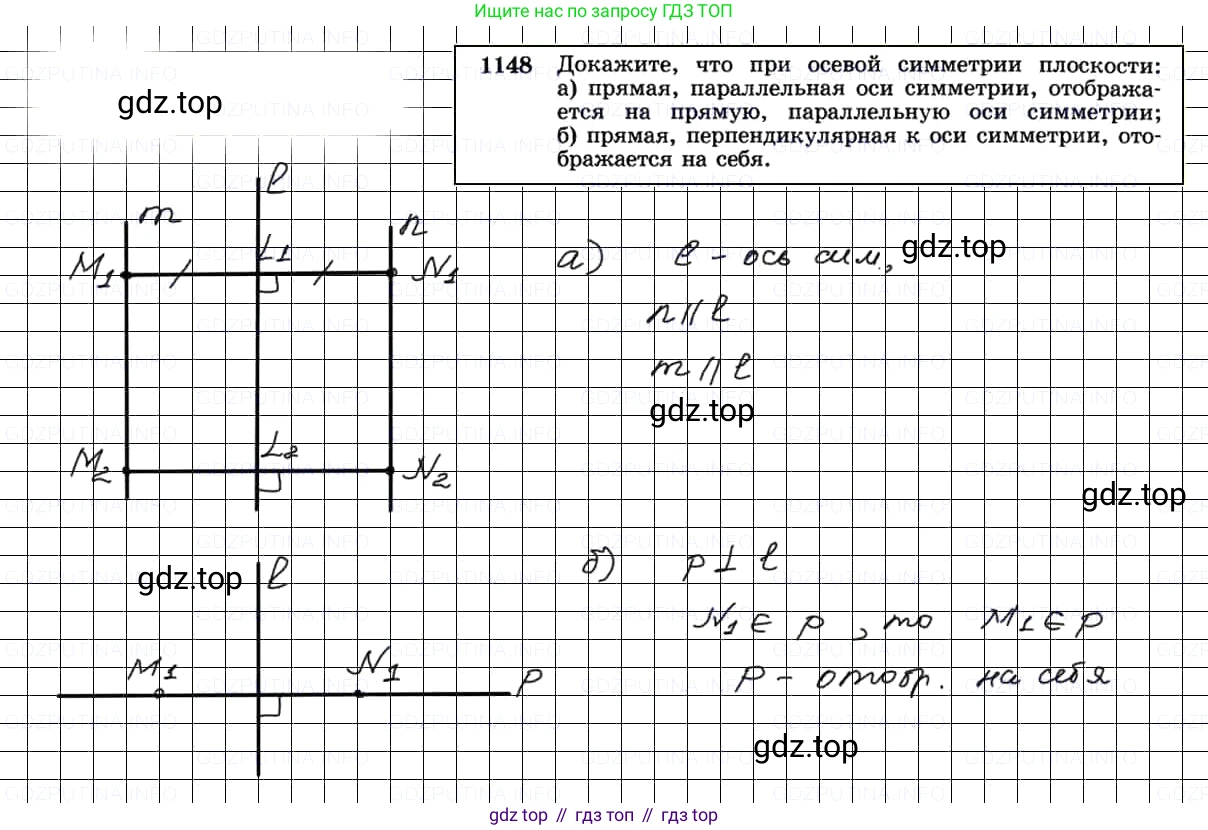 Ищите нас по запросу ГДЗ ТОП
1148 Докажите, что при осевой симметрии плоскости:
а) прямая, параллельная оси симметрии, отобража-
ется на прямую, параллельную оси симметрии;
б) прямая, перпендикулярная к оси симметрии, ото-
бражается на себя.
gdz.top
m
l
n
M1
L1
N1
M2
L2
N2
а) l - ось сим,
gdz.top
n || l
m || l
gdz.top
gdz.top
gdz.top
l
M1
N1
p
б) p ⊥ l
N1 ∈ p, то M1 ∈ p
p - отобр. на себя
gdz.top
gdz top // гдз топ // гдз top